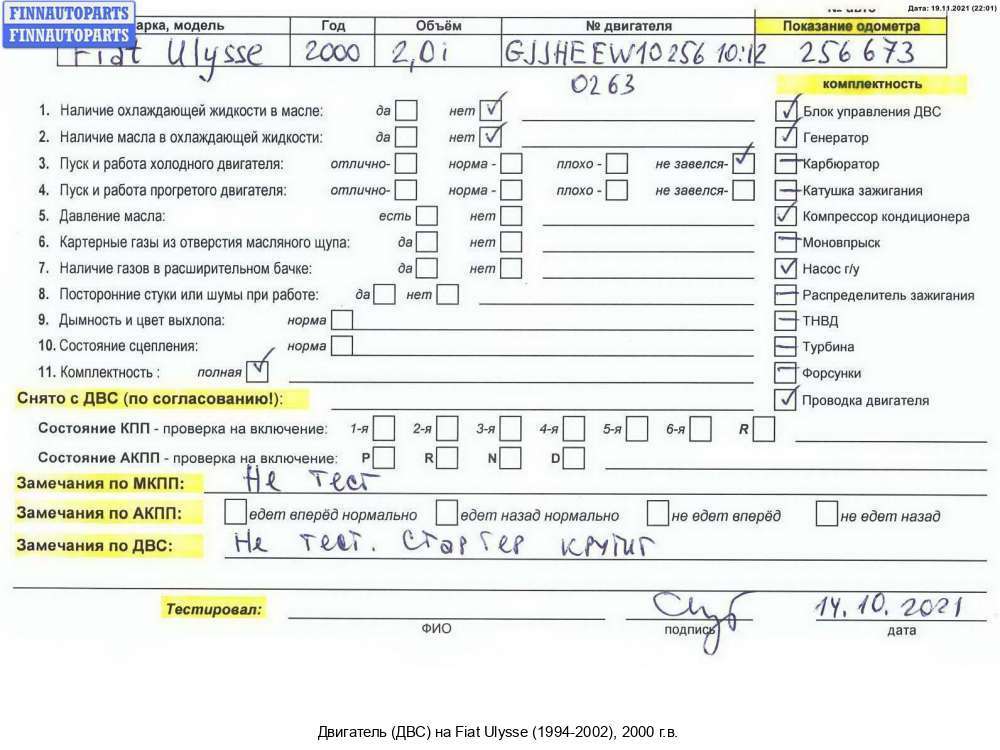 FINNAUTOPARTS
FINNAUTOPARTS
Дата: 19.11.2021 (22:01)
арка, модель Год Объём № двигателя Показание одометра
Fiat Ulysse 2000 2,0i 256 673
0263
комплектность
1. Наличие охлаждающей жидкости в масле: да нет Блок управления ДВС
2. Наличие масла в охлаждающей жидкости: да нет Генератор
3. Пуск и работа холодного двигателя: отлично- норма - плохо - не завелся- Карбюратор
4. Пуск и работа прогретого двигателя: отлично- норма - плохо - не завелся- Катушка зажигания
5. Давление масла: есть нет Компрессор кондиционера
6. Картерные газы из отверстия масляного щупа: да нет Моновпрыск
7. Наличие газов в расширительном бачке: да нет Насос г/у
8. Посторонние стуки или шумы при работе: да нет Распределитель зажигания
9. Дымность и цвет выхлопа: норма ТНВД
10. Состояние сцепления: норма Турбина
11. Комплектность : полная Форсунки
Снято с ДВС (по согласованию!): Проводка двигателя
Состояние КПП - проверка на включение: 1-я 2-я 3-я 4-я 5-я 6-я R
Состояние АКПП - проверка на включение: P R N D
Замечания по МКПП: Не тест
Замечания по АКПП: едет вперёд нормально едет назад нормально не едет вперёд не едет назад
Замечания по ДВС: Не тест. Стартер крутит
Тестировал: 14.10.2021
ФИО подпись дата
Двигатель (ДВС) на Fiat Ulysse (1994-2002), 2000 г.в.